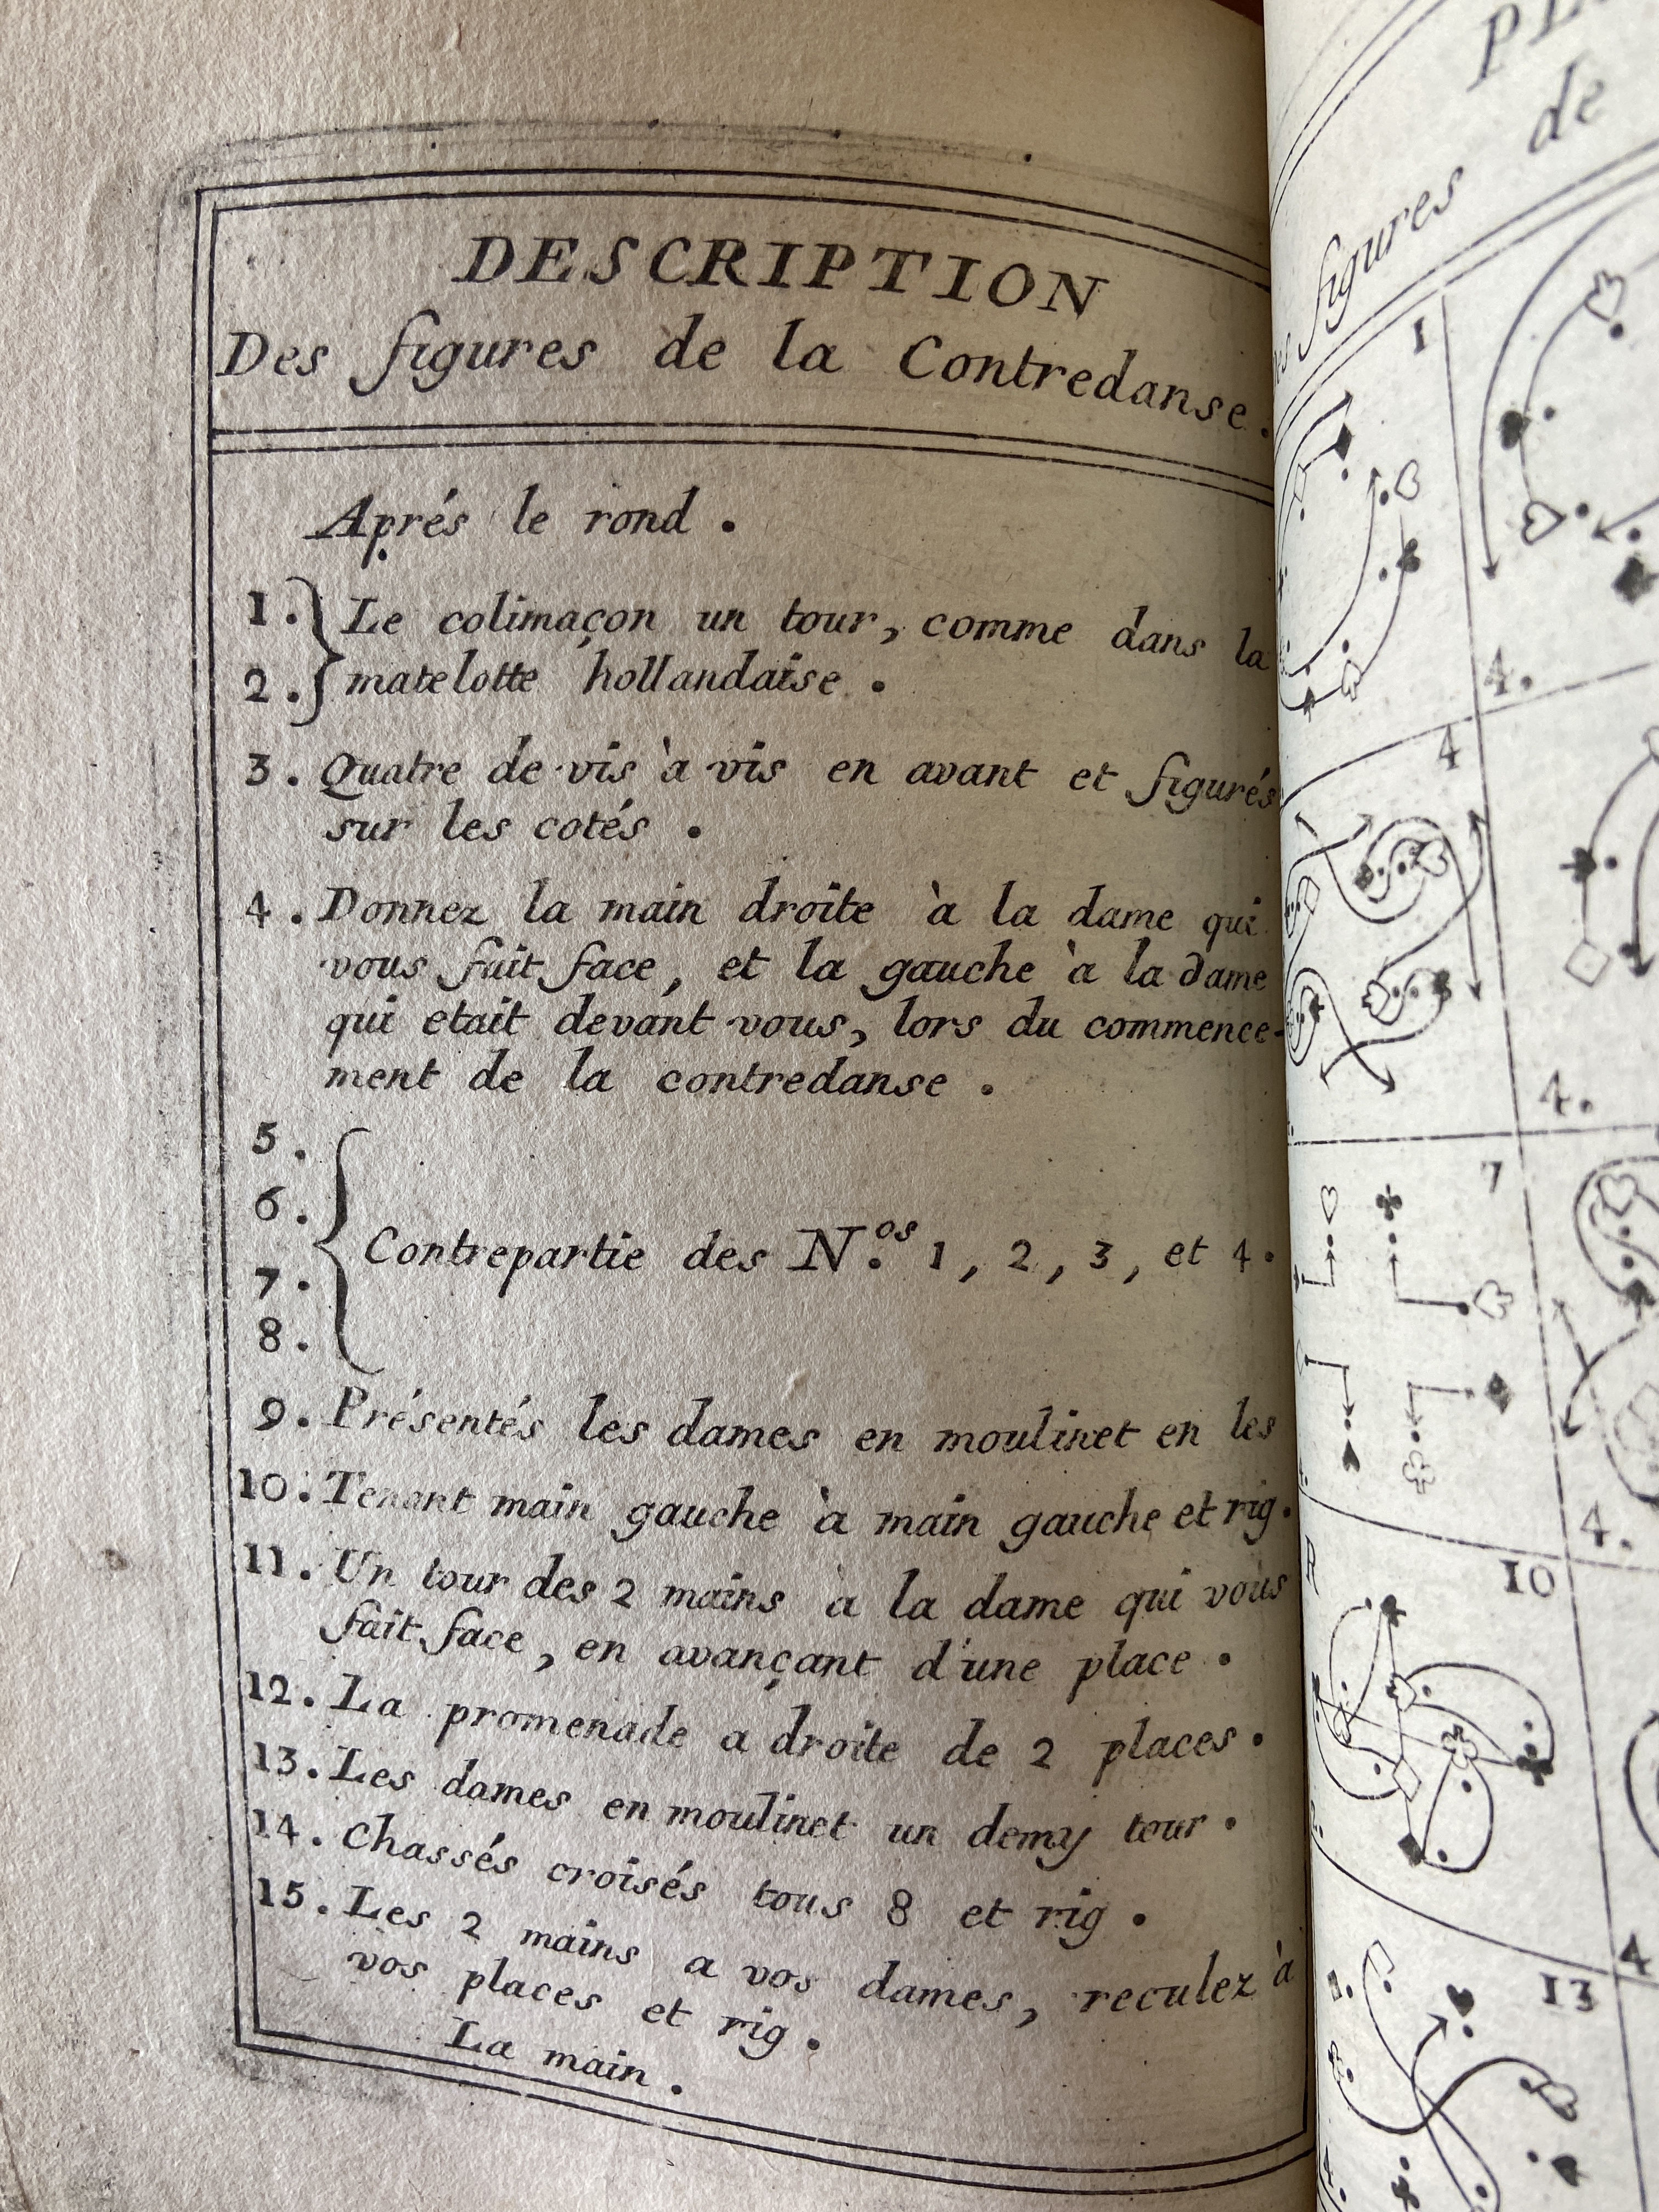 DESCRIPTION
Des figures de la Contredanse.
Aprés le rond.
1. Le colimaçon un tour, comme dans la
2. matelotte hollandaise.
3. Quatre de vis à vis en avant et figurés
sur les cotés.
4. Donnez la main droite à la dame qui
vous fait face, et la gauche à la dame
qui etait devant vous, lors du commence-
ment de la contredanse.
5.
6.
Contrepartie des N.os 1, 2, 3, et 4.
7.
8.
9. Présentés les dames en moulinet en les
10. Tenant main gauche à main gauche et rig.
11. Un tour des 2 mains à la dame qui vous
fait face, en avançant d'une place.
12. La promenade a droite de 2 places.
13. Les dames en moulinet un demy tour.
14. Chassés croisés tous 8 et rig.
15. Les 2 mains a vos dames, reculez à
vos places et rig.
La main.
de
figures
1
4.
4
4.
7
4.
10
4
13